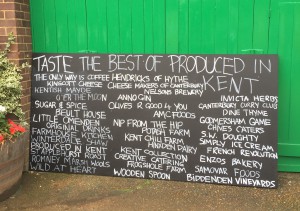 TASTE THE BEST OF PRODUCED IN
KENT
THE ONLY WAY IS COFFEE HENDRICKS OF HYTHE
KINGSCOTT CHEESE CHEESE MAKERS OF CANTERBURY
KENTISH MAYDE NELSONS BREWERY
O'ER THE MOON ANNO GIN INVICTA HERBS
SUGAR & SPICE OLIVES R GOOD 4 YOU CANTERBURY CURRY CLUB
BEULT HOUSE AMC FOODS DINE THYME
LITTLE OMENDEN GODMERSHAM GAME
ORIGINAL DRINKS NIP FROM THE HIP CHINES CATERS
FARMHOUSE KITCHEN POTASH FARM S.W. DOUGHTY
WINDSHIFT KENT CHILLI FARM SIMPLY ICE CREAM
PRODUCED IN KENT HINXDEN DAIRY FRENCH REVOLUTION
STAPLEHURST ROAST KENT COLLECTION ENZOS BAKERY
ROMNEY MARSH WOOLS CREATIVE CATERING
WILD AT HEART FROGSHOLE FARM SAMOVAR FOODS
WOODEN SPOON BIDDENDEN VINEYARDS